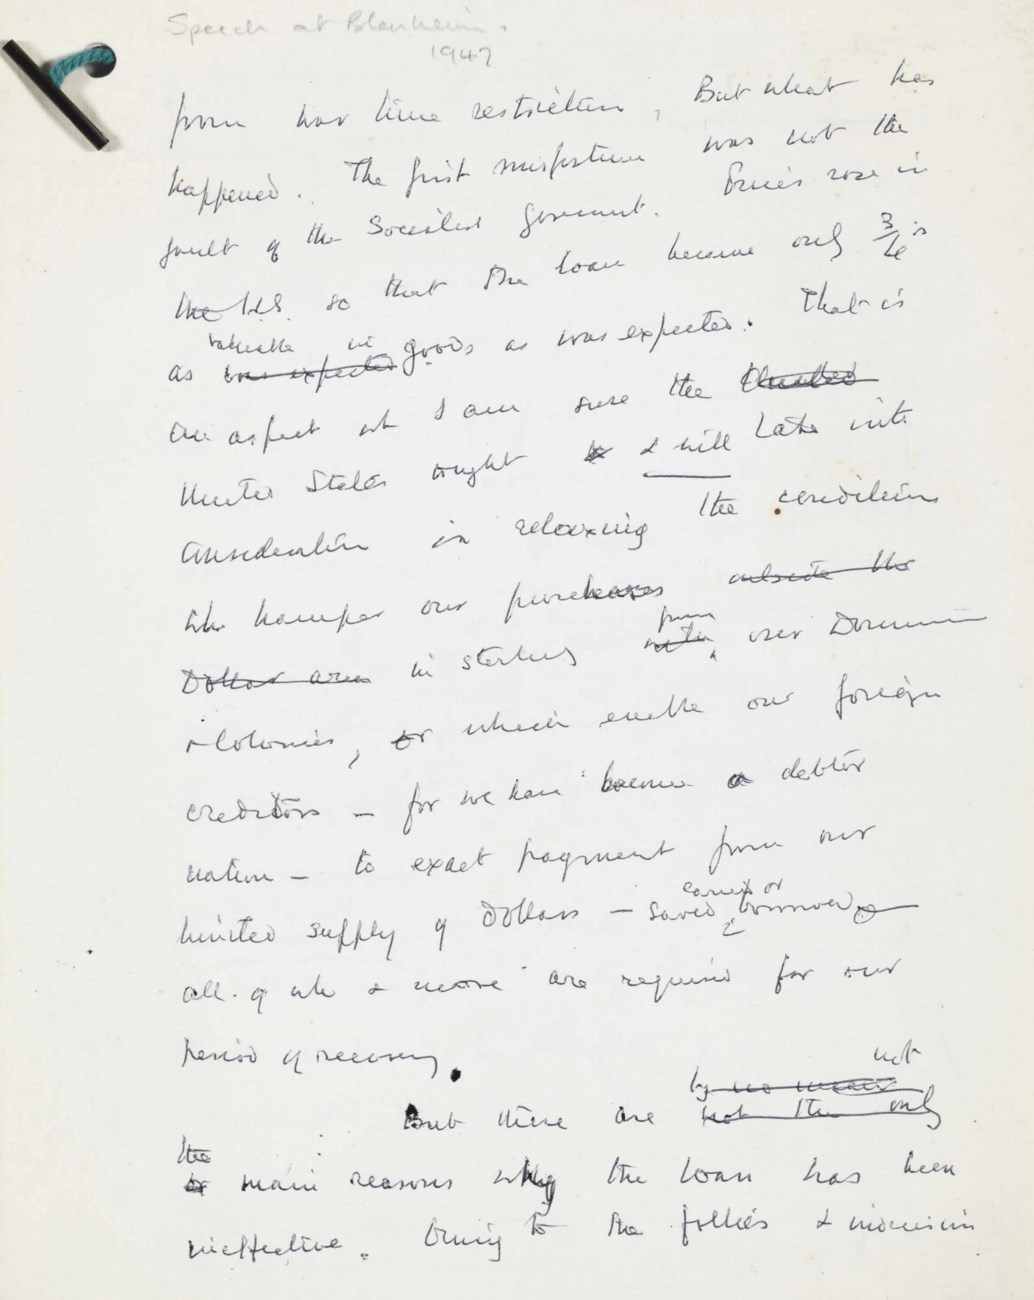 Speech at Blenheim.
1947
from war time restriction. But what has
happened. The first misfortune was not the
fault of the Socialist Goverment. Prices rose in
the U.S. so that the loan became only 3/4 is
valuable in
as was expected goods as was expected. That is
an aspect wh I am sure the
United States ought to & will take into
consideration in relaxing the conditions
wh hamper our purchases outside the
from
Dollar area in sterling with our Dominion
& Colonies, or which enable our foreign
creditors – for we have become a debtor
nation – to exact payment from our
earned or
limited supply of Dollars – saved borrowed
all of wh & more are required for our
period of recovery.
by no means not
But these are not the only
the
main reasons why the loan has been
ineffective. Owing to the follies &